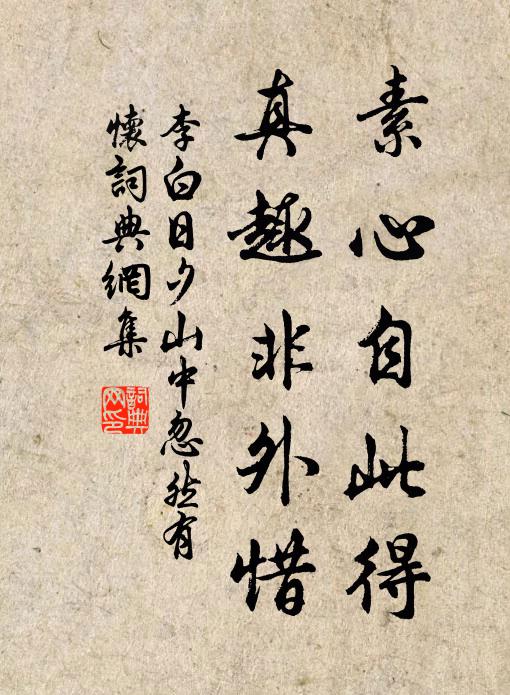 素心自此得
真趣非外惜
李白日夕山中忽然有
懷詞典網集
詞典
网印